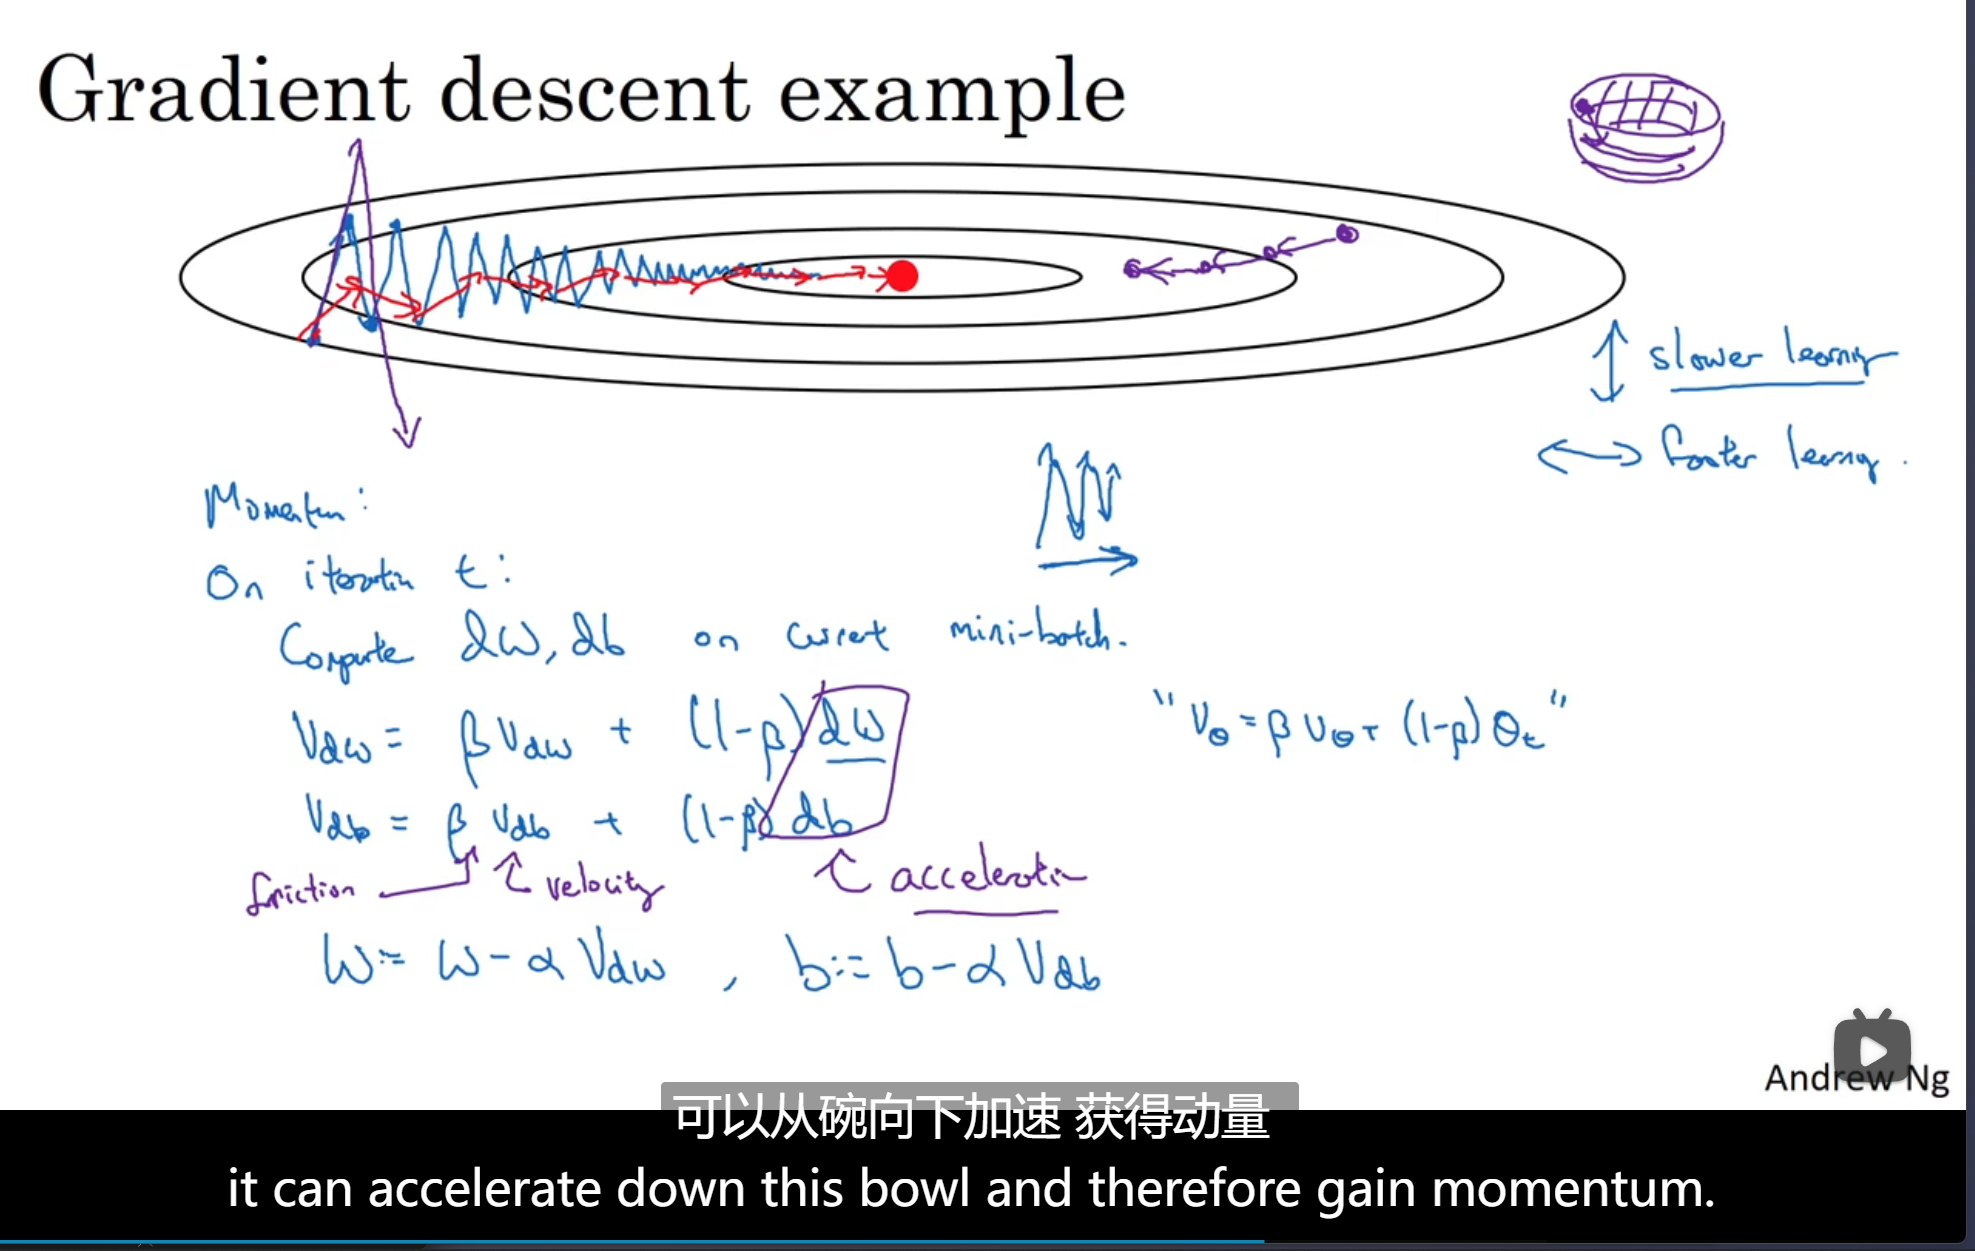 Gradient descent example
slower learning
faster learning.
Momentum:
On iteration t:
Compute dW, db on current mini-batch.
Vdw = βVdw + (1-β)dW
"Vθ = βVθ + (1-β)θt"
Vdb = βVdb + (1-β)db
friction velocity acceleration
W:= W - αVdw, b:= b - αVdb
Andrew Ng
可以从碗向下加速 获得动量
it can accelerate down this bowl and therefore gain momentum.